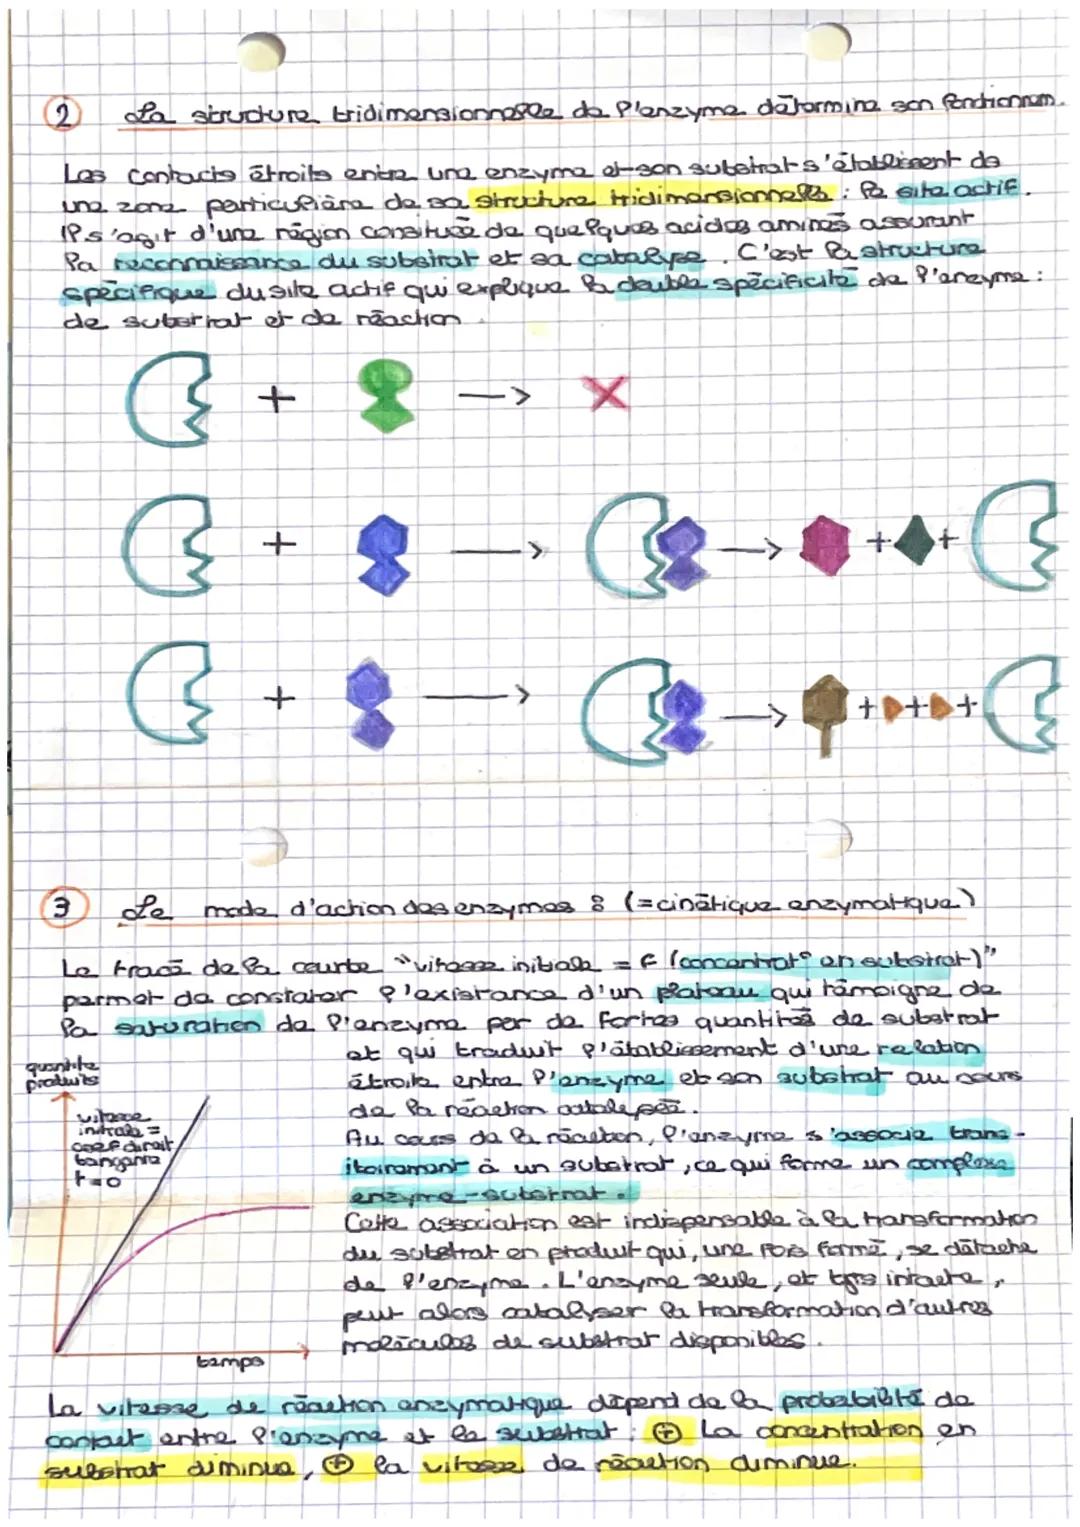 2 La structure tridimensionnelle de l'enzyme détermine son fonctionnem.
Les contacts étroits entre une enzyme et son substrat s'établissent de
une zone particulière de sa structure tridimensionnelle : le site actif.
Il s'agit d'une région constituée de quelques acides aminés assurant
la reconnaissance du substrat et sa catalyse. C'est la structure
spécifique du site actif qui explique la double spécificité de l'enzyme :
de substrat et de réaction.
+ —> X
+ —> —> + +
+ —> —> + + +
3 Le mode d'action des enzymes : (=cinétique enzymatique)
Le tracé de la courbe "vitesse initiale = f (concentrat° en substrat)"
permet de constater l'existance d'un plateau qui témoigne de
la saturation de l'enzyme per de fortes quantités de substrat
et qui traduit l'établissement d'une relation
étroite entre l'enzyme et son substrat au cours
de la réaction catalysée.
Au cours de la réaction, l'enzyme s'associe trans-
itoirement à un substrat, ce qui forme un complexe
enzyme-substrat.
Cette association est indispensable à la transformation
du substrat en produit qui, une fois formé, se détache
de l'enzyme. L'enzyme seule, et tjrs intacte,
peut alors catalyser la transformation d'autres
molécules de substrat disponibles.
quantité
produits
vitesse
initiale =
coef direct
tangante
t=0
temps
La vitesse de réaction enzymatique dépend de la probabilité de
contact entre l'enzyme et le substrat : ⊕ La concentration en
substrat diminue, ⊕ la vitesse de réaction diminue.